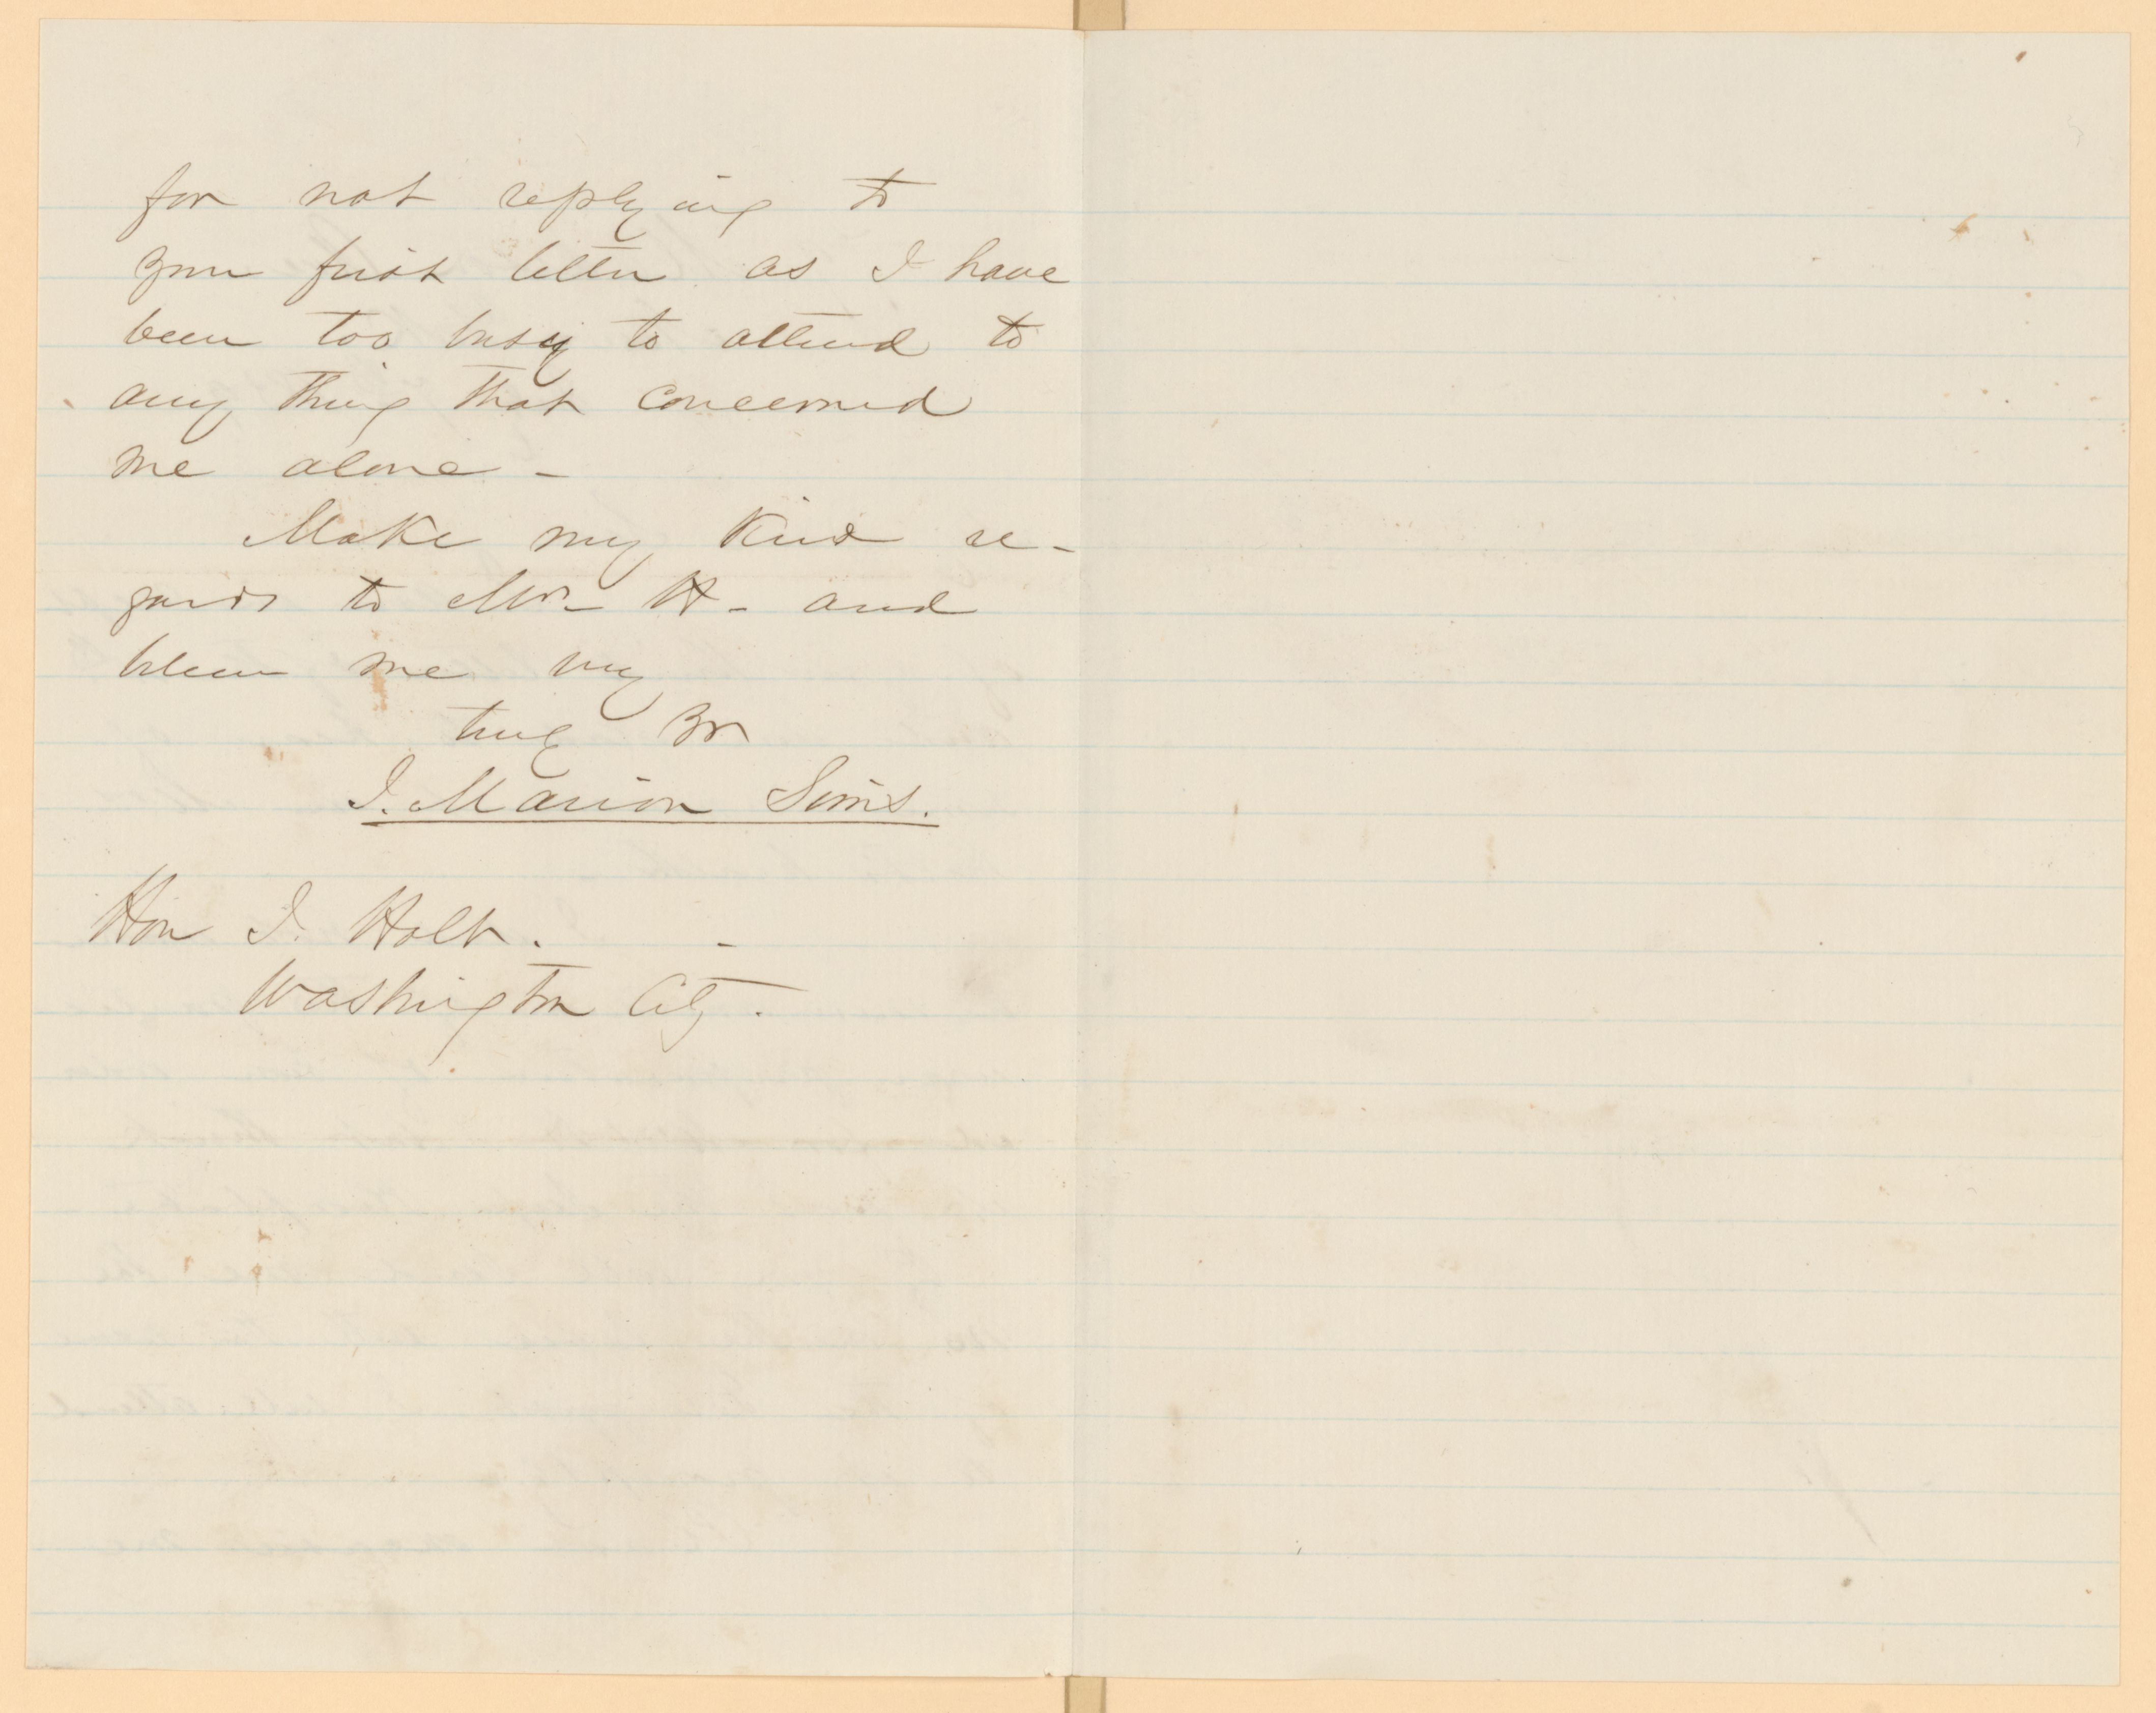 for not replying to
your first letter as I have
been too busy to attend to
any thing that concerned
me alone -
Make my kind re-
gards to Mrs H - and
believe me very
truly yrs
J. Marion Sims.
Hon J. Holt.
Washington City.